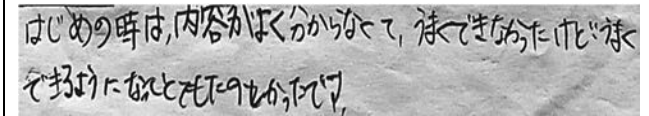 はじめの時は,内容がよく分からなくて,うまくできなかったけどうまく
できるようになってとてもたのしかったです,